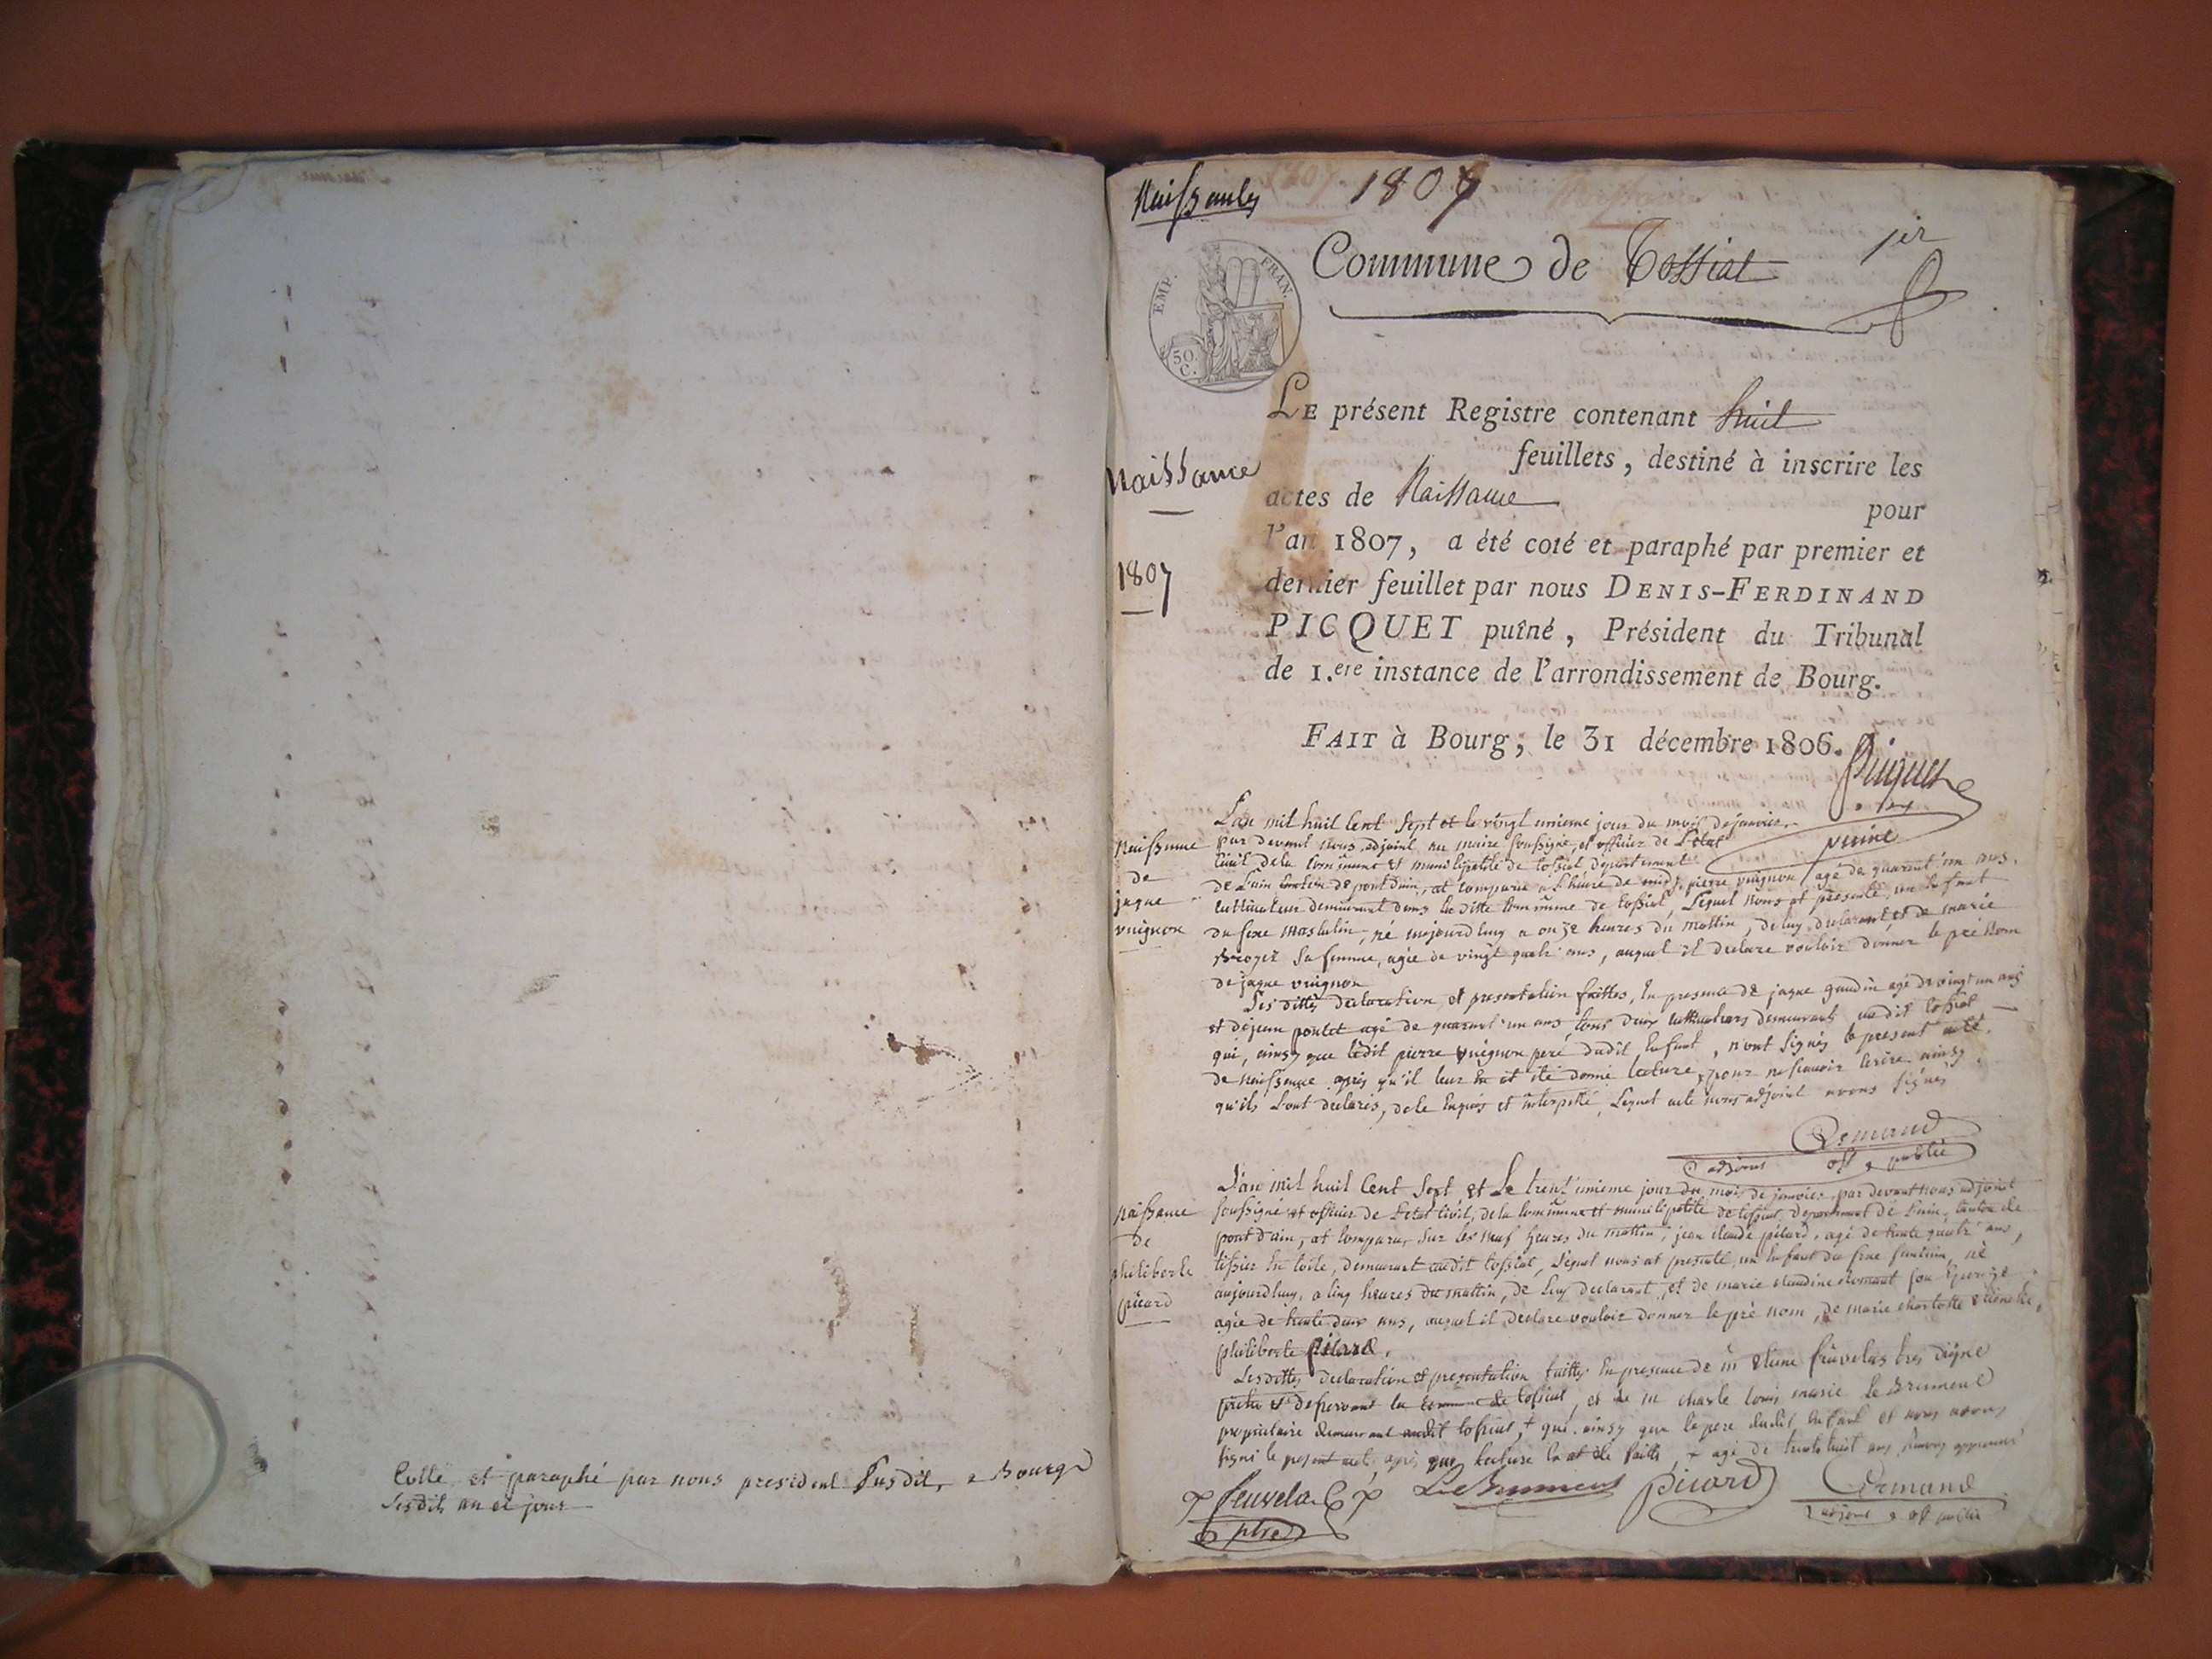 Cotté et paraphé par nous president Susdit, a Bourg
Lesdits an et jour
Naissances
1807
Commune de Tossiat
1er
EMP. FRAN.
50 C.
LE présent Registre contenant huit
feuillets, destiné à inscrire les
Naissance
actes de Naissance pour
1807
l'an 1807, a été coté et paraphé par premier et
dernier feuillet par nous DENIS-FERDINAND
PICQUET puîné, Président du Tribunal
de 1.ere instance de l'arrondissement de Bourg.
FAIT à Bourg, le 31 décembre 1806.
Picquet
puiné
Naissance
de
jaque
vuignon
L'an mil huit Cent Sept et le vingt unieme jour du mois de janvier
par devant nous adjoint au maire soussigné, et officier de L'état
Civil de la Commune et municipalité de tossiat département
de L'ain Canton de pont d'ain, at comparu a L'heure de midy pierre vuignon agé de quarant'un ans,
Cultivateur demeurant dans la ditte Commune de tossiat, Lequel nous at presenté, un Enfant
du sexe masculin, né aujourd'huy a onze heures du mattin, de luy declarant, et de marie
sa femme, agée de vingt quatr'ans, auquel il declare vouloir donner le pré nom
de jaque vuignon
Les dittes declaration et presentation faittes, En presence de jaque gaudin agé de vingt un ans
et de jean poulet agé de quarant'un ans, tous deux Cultivateurs demeurants audit tossiat
qui, ainsy que ledit pierre vuignon pere dudit Enfant, n'ont signés le present acte
de naissance après qu'il leur En et été donné lecture, pour ne scavoir Ecrire ainsy
qu'ils L'ont declarés, de le Enquis et interpellé, Lequel acte nous adjoint avons signés
Ermand
adjoint off. public
Naissance
de
philiberte
picard
L'an mil huit Cent Sept, et Le trent'unieme jour du mois de janvier, par devant nous adjoint
soussigné et officier de L'etat Civil, de la Commune et municipalité de tossiat, departement de L'ain, Canton de
pont d'ain, at Comparu, sur les neuf heures du mattin, jean claude picard, agé de trente quatr'ans,
tissier En toile, demeurant audit tossiat, Lequel nous at presenté, un Enfant du sexe feminin, né
aujourd'huy, a Cinq heures du mattin, de Luy declarant, et de marie claudine son Epouze
agée de trente deux ans, auquel il declare vouloir donner le pré nom, de marie charlotte
philiberte picard.
Lesdittes declaration et presentation faittes En presence de mr feuvelas tres digne
pretre et deservant la Commune de tossiat, et de mr charle louis marie le Brument
propriétaire demeurant audit tossiat, + qui ainsy que le pere dudit Enfant et nous avons
signé le present acte, après que lecture En at été faitte, + agé de trente huit ans
feuvelas
ptre
Le Brument
picard
Ermand
adjoint off public